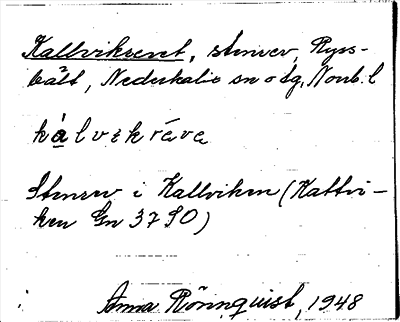 Kallviksrevet, stenrev, Ryss-
bält, Nederkalix sn o tg, Norrb. l
kàlvikrǻva
Stenrev i Kallviken (Kattvi-
ken Gn 3790)
Anna Rönnquist, 1948